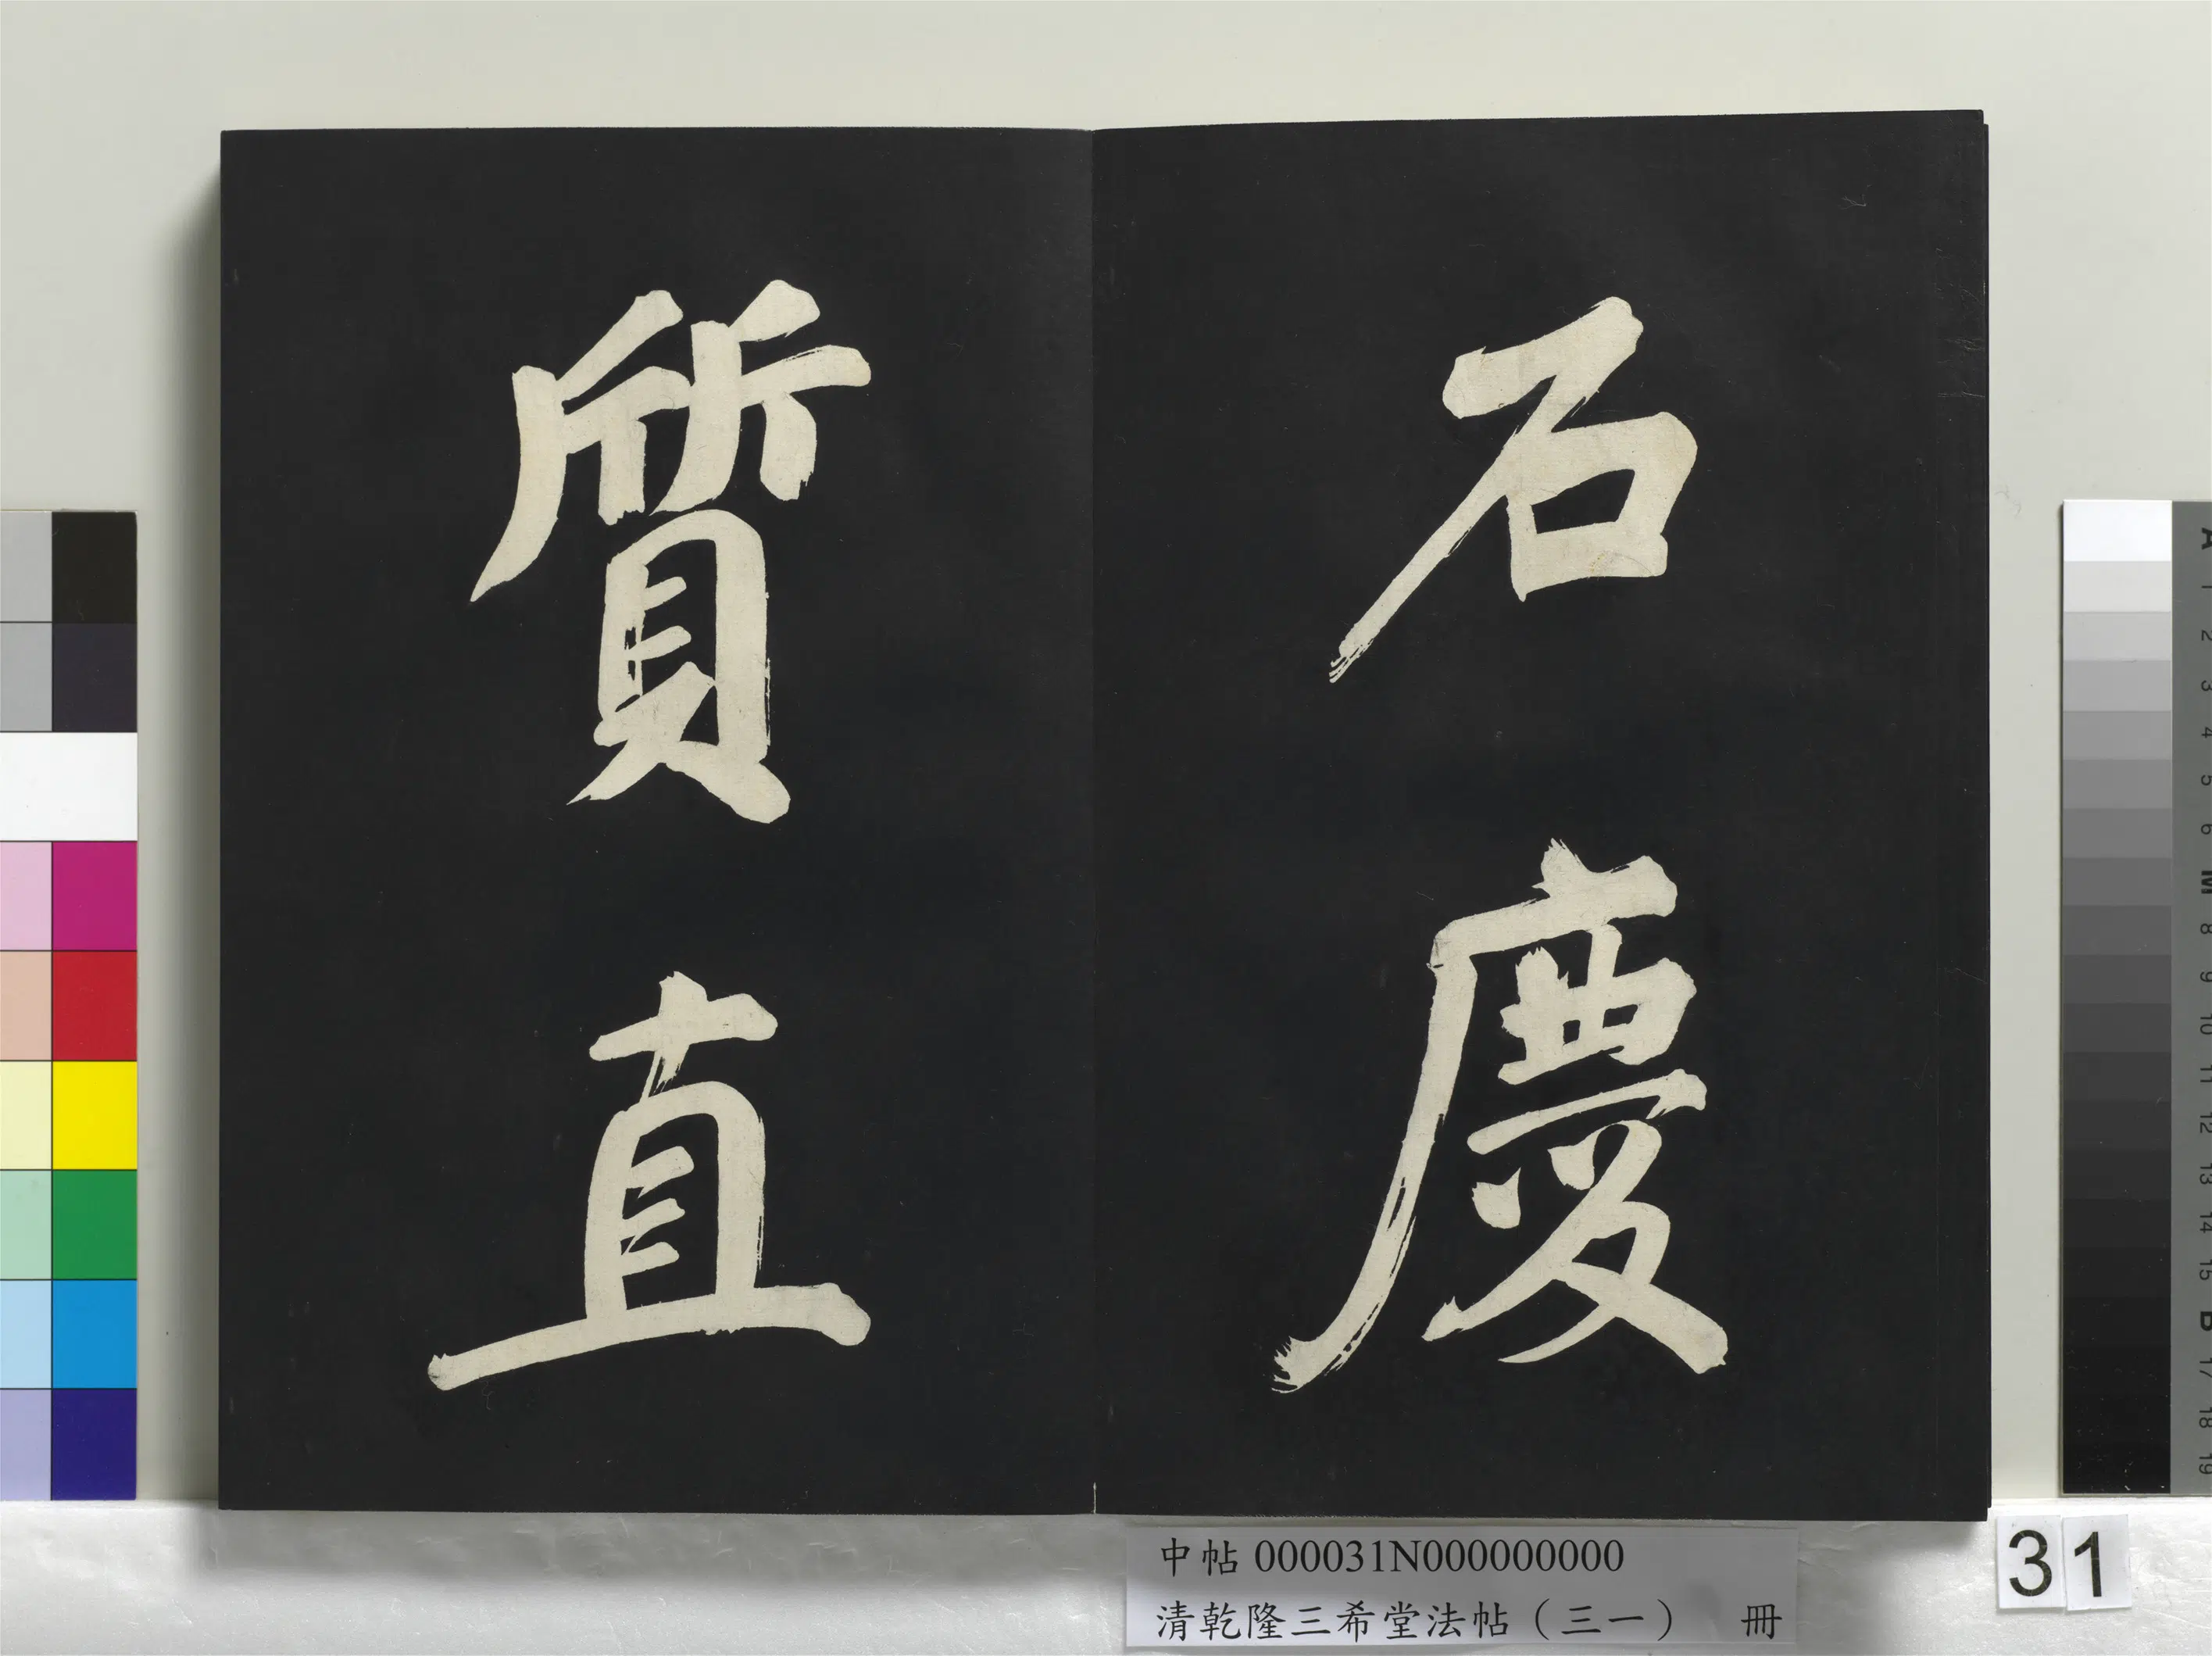 石慶
質直
中帖 000031N000000000
清乾隆三希堂法帖（三一） 冊
31
A
1
2
3
4
5
6
M
8
9
10
11
12
13
14
15
B
17
18
19